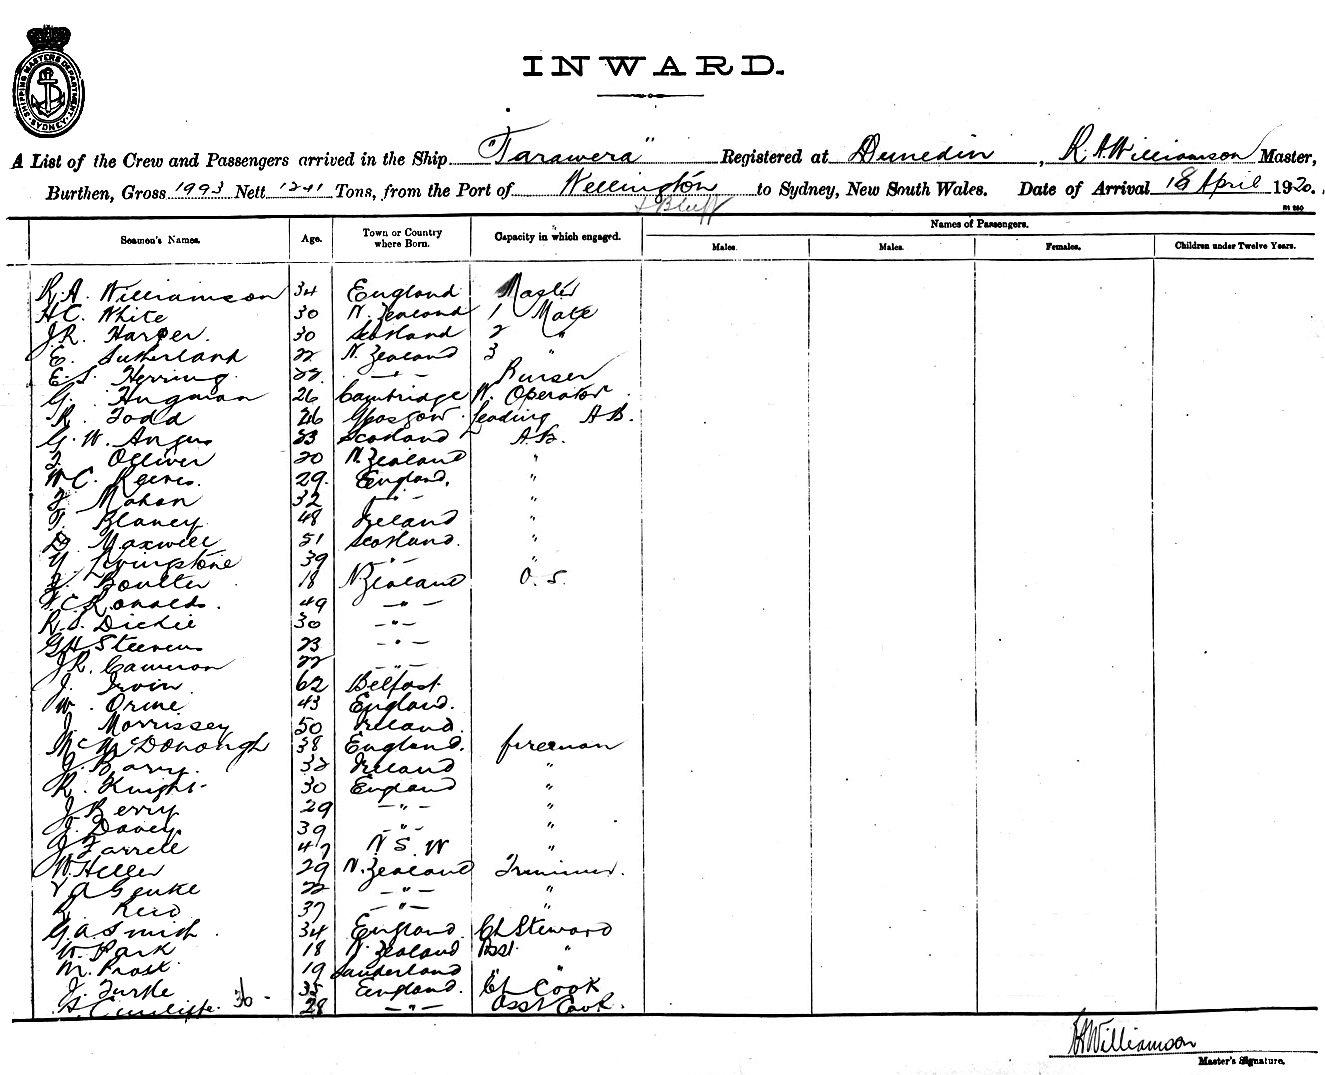 SHIPPING MASTERS DEPARTMENT SYDNEY
INWARD.
A List of the Crew and Passengers arrived in the Ship "Tarawera" Registered at Dunedin, R. A. Williamson Master,
Burthen, Gross 1993 Nett Tons, from the Port of Wellington to Sydney, New South Wales. Date of Arrival 18 April 1920.
& Bluff
Names of Passengers.
Seamen's Names. Age. Town or Country where Born. Capacity in which engaged. Males. Males. Females. Children under Twelve Years.
R. A. Williamson 34 England Master
H C. White 30 N. Zealand 1 Mate
J R. Harper. 30 Scotland 2 "
E. Sutherland 22 N. Zealand 3 "
E. S. Herring. 22. — " — Purser
G. Hugman 26 Cambridge W. Operator
R. Todd 26 Glasgow Leading A B.
G. W. Angus 23 Scotland A.B.
Olliver 20 N. Zealand "
W C. 29. England. "
Mahon 32 — " — "
T. Blaney 48 Ireland "
D. Maxwell 51 Scotland. "
Livingstone 39 — " — "
Boulter 18 N Zealand O. S.
C Ronalds. 49 — " —
R. S. Dickie 30 — " —
G H Steevens 23 — " —
J R. Cameron 22 — " —
J. Irvin 62 Belfast.
W. Orme 43 England.
J. Morrissey 50 Ireland.
McDonough 38 England. fireman
J. Barry. 32 Ireland "
R. Knight 30 England "
J Berry 29 — " — "
J. Davey 39 — " — "
J Farrell 47 N S. W "
W. Heller 29 N. Zealand Trimmer.
A 22 — " — "
R. Reid 37 — " — "
G. A Smith. 34 England. Ch Steward
W. Park 18 N. Zealand Asst. "
M. Frost 19 Sunderland "
J. Turtle 35 England. Ch Cook
Cunliffe. 36 - 28 — " — Asst Cook.
Williamson
Master's Signature.